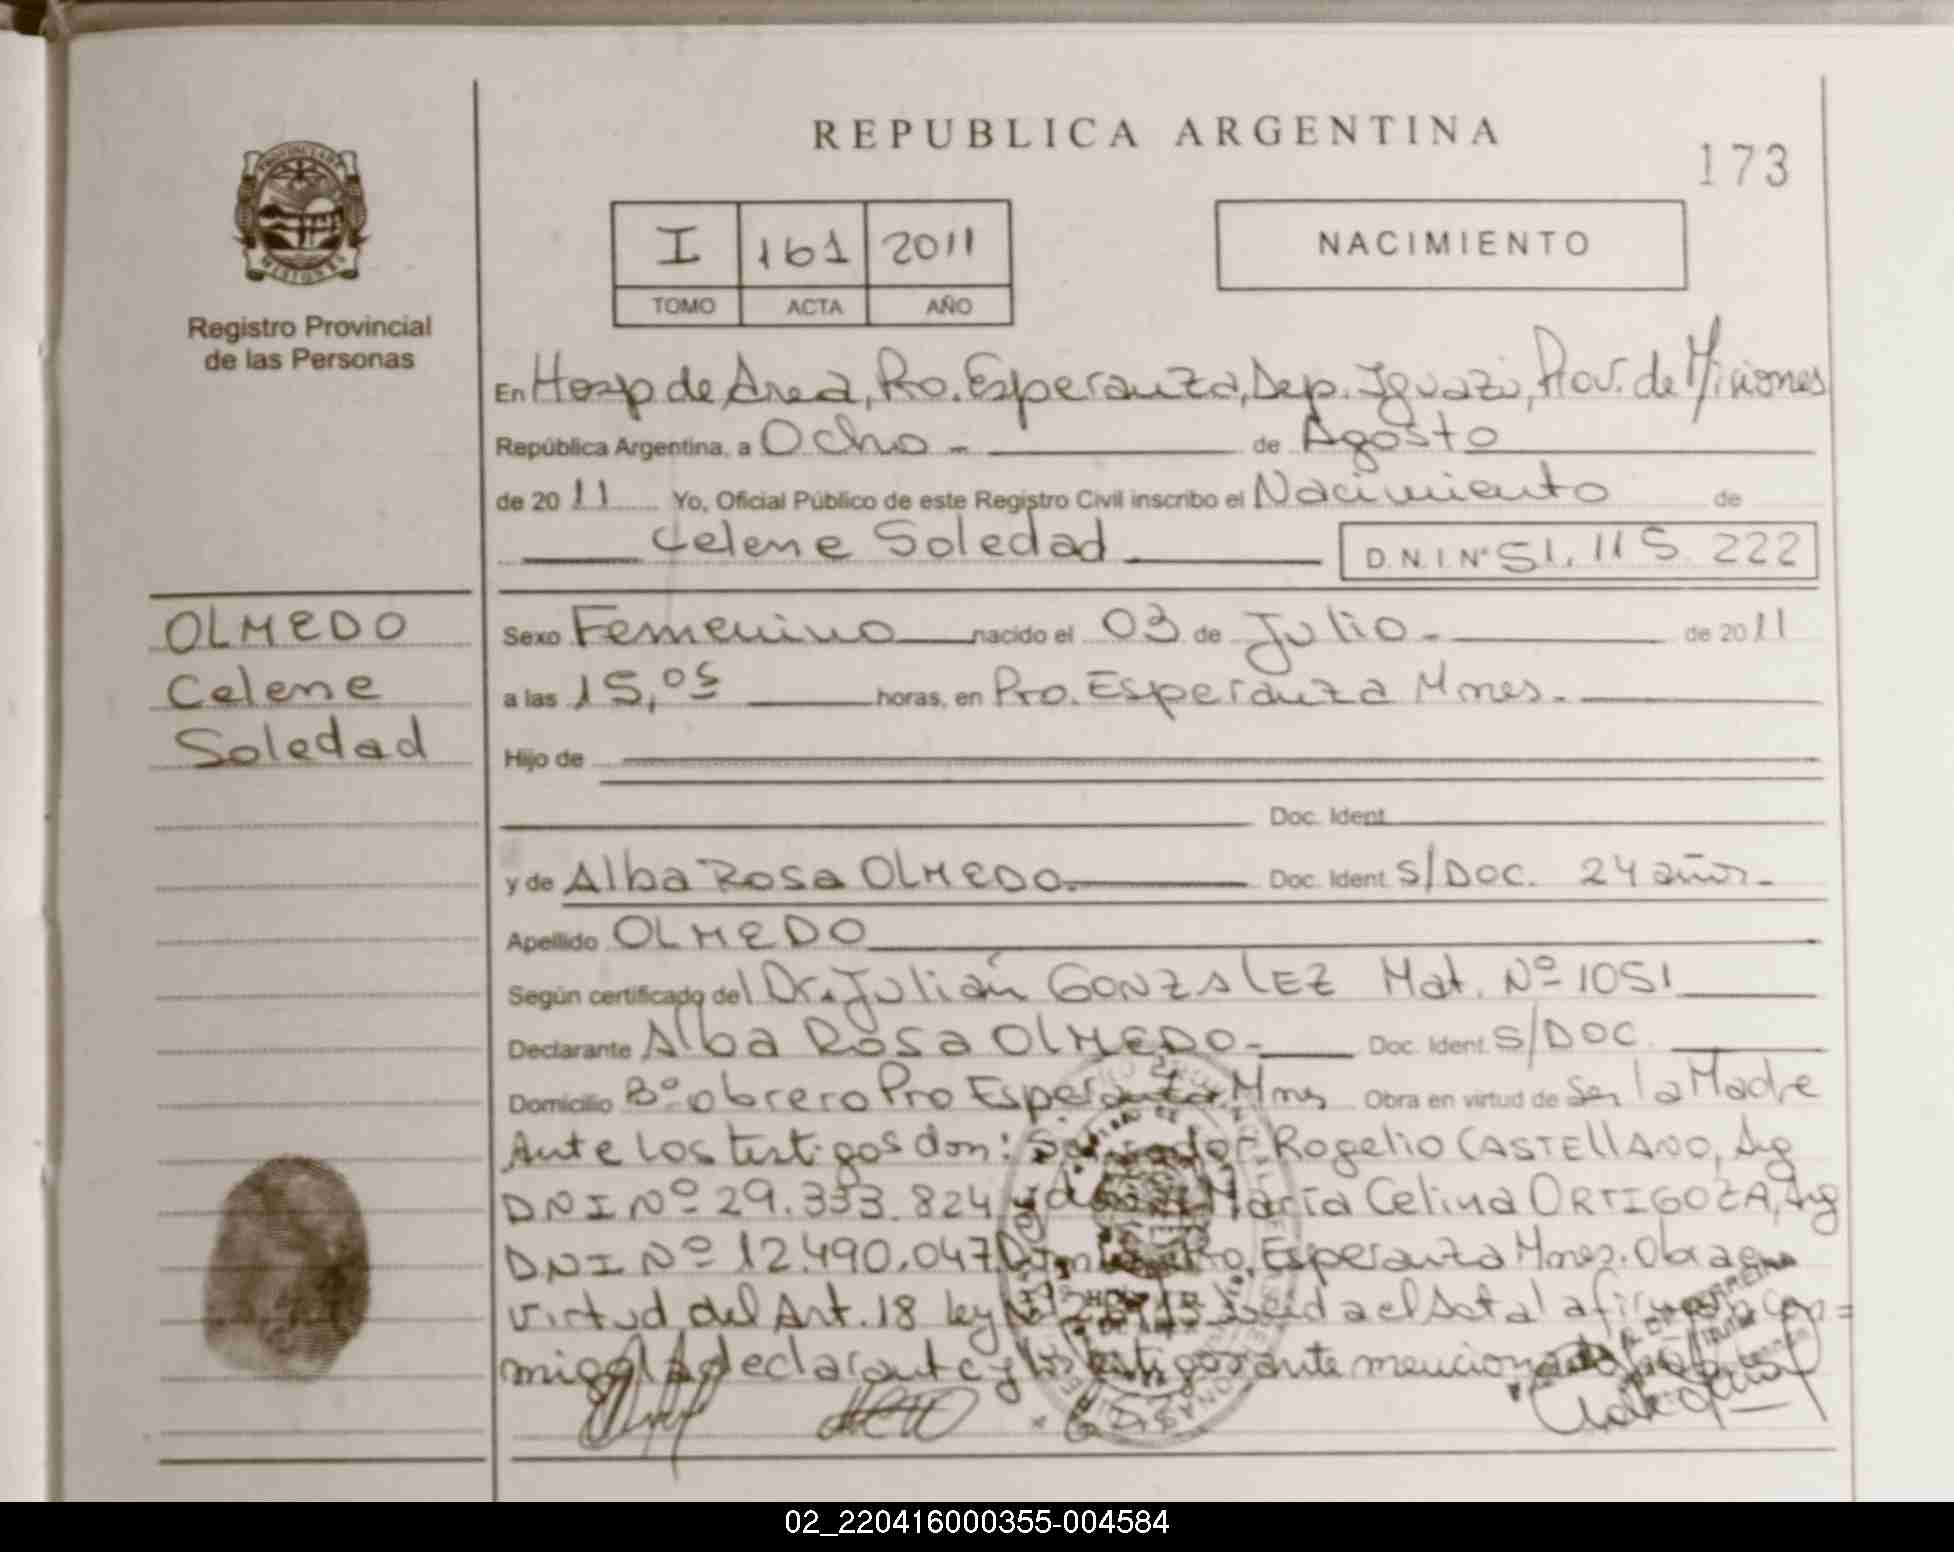 REPUBLICA ARGENTINA
173
PROVINCIA DE
MISIONES
Registro Provincial
de las Personas
I 161 2011
TOMO ACTA AÑO
NACIMIENTO
En Hosp de Area, Pto. Esperanza, Dep. Iguazú, Prov. de Misiones
República Argentina, a Ocho - de Agosto
de 20 11 Yo, Oficial Público de este Registro Civil inscribo el Nacimiento de
Celene Soledad D.N.I. Nº 51.115.222
OLMEDO
Celene
Soledad
Sexo Femenino nacido el 03 de Julio - de 20 11
a las 15,05 horas, en Pto. Esperanza Mnes.-
Hijo de
Doc. Ident.
y de Alba Rosa OLMEDO. Doc. Ident. S/DOC. 24 años.-
Apellido OLMEDO
Según certificado del Dr. Julián GONZALEZ Mat. Nº 1051
Declarante Alba Rosa OLMEDO.- Doc. Ident. S/DOC.
Domicilio Bº obrero Pto Esperanza Mnes Obra en virtud de Ser la Madre
Ante los testigos don: Rogelio CASTELLANO, Arg
DNI Nº 29.333.824 y María Celina ORTIGOZA, Arg
DNI Nº 12.490.047 Pto. Esperanza Mnes. Obra en
virtud del Art. 18 ley Leida el Acta la firman con=
migo la declarante y los testigos ante mencionados
02_220416000355-004584